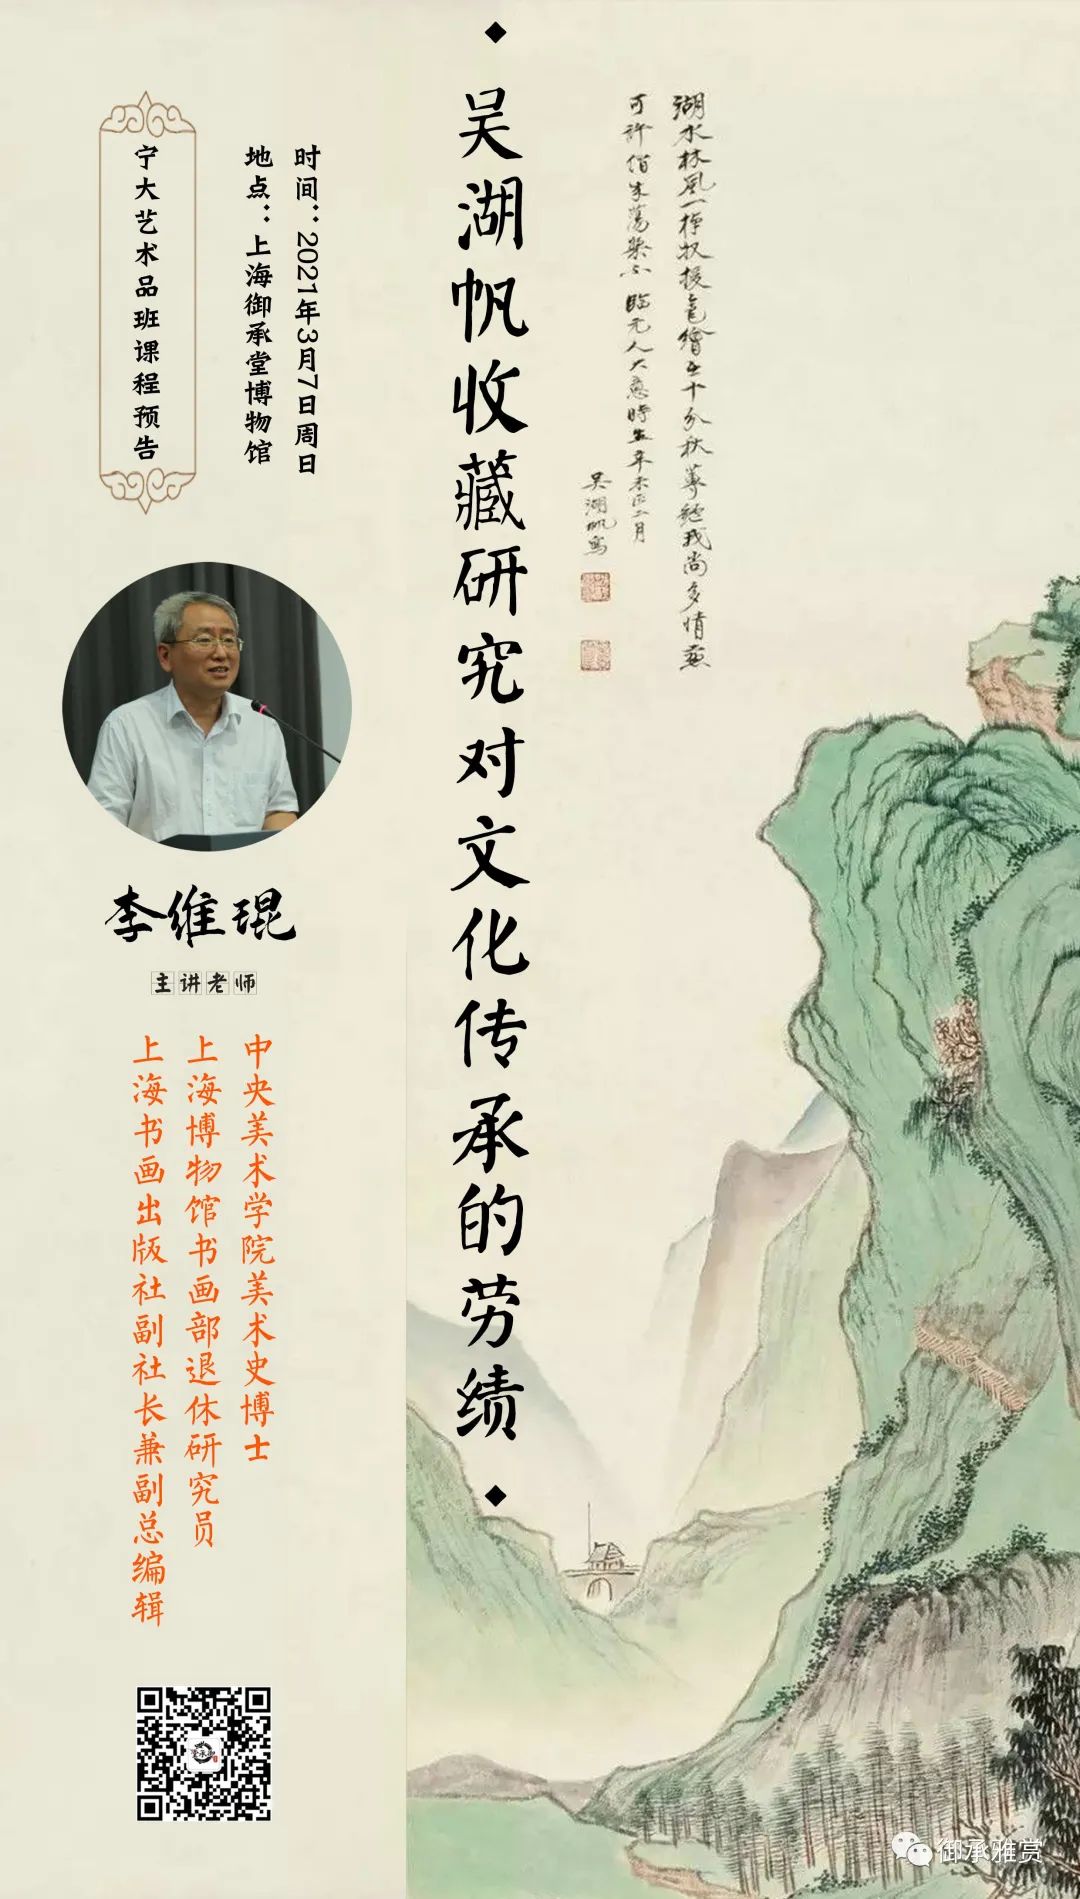 宁大艺术品班课程预告
时间：2021年3月7日周日
地点：上海御承堂博物馆
吴湖帆收藏研究对文化传承的劳绩
湖水林风一棹
十分秋
我尚多情
可许借
临元人大意时
年
二月
吴湖帆写
李维琨
主讲老师
中央美术学院美术史博士
上海博物馆书画部退休研究员
上海书画出版社副社长兼副总编辑
御承雅赏